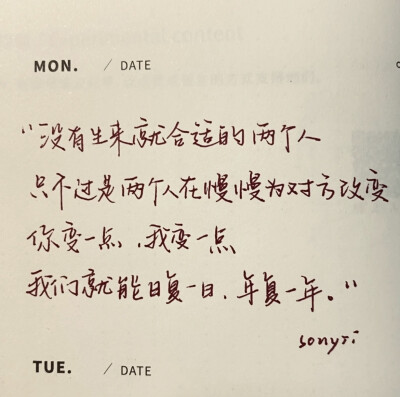 MON. / DATE
“没有生来就合适的两个人
只不过是两个人在慢慢为对方改变
你变一点，我变一点
我们就能日复一日、年复一年。”
TUE. / DATE